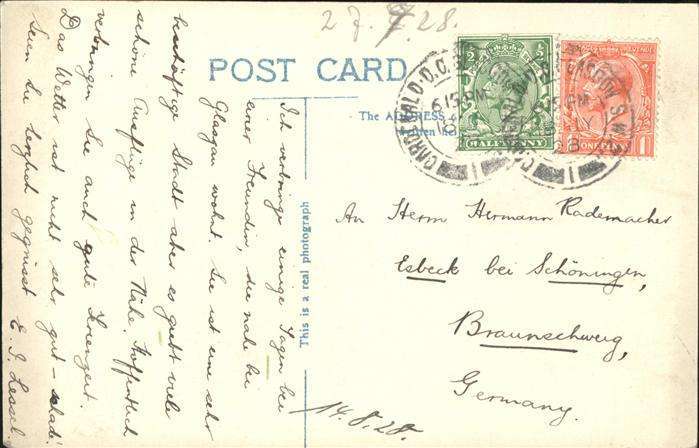 27.7.28.
POST CARD
The ADDRESS
written here
This is a real photograph
HALFPENNY
ONE PENNY
CARDONALD
6 15 PM
GLASGOW S.W.
Ich verbringe einige Tagen bei
einer Freundin, die nahe bei
Glasgow wohnt. Sie ist eine sehr
beschäftige Stadt aber es giebt viele
schöne Ausflüge in der Nähe. Hoffentlich
verbringen Sie auch gute
Das Wetter ist nicht sehr gut – schade!
Seien Sie herzlich gegrüsst E. J.
An Herrn Hermann Rademacher
Esbeck bei Schöningen,
Braunschweig,
Germany.
14.8.28.